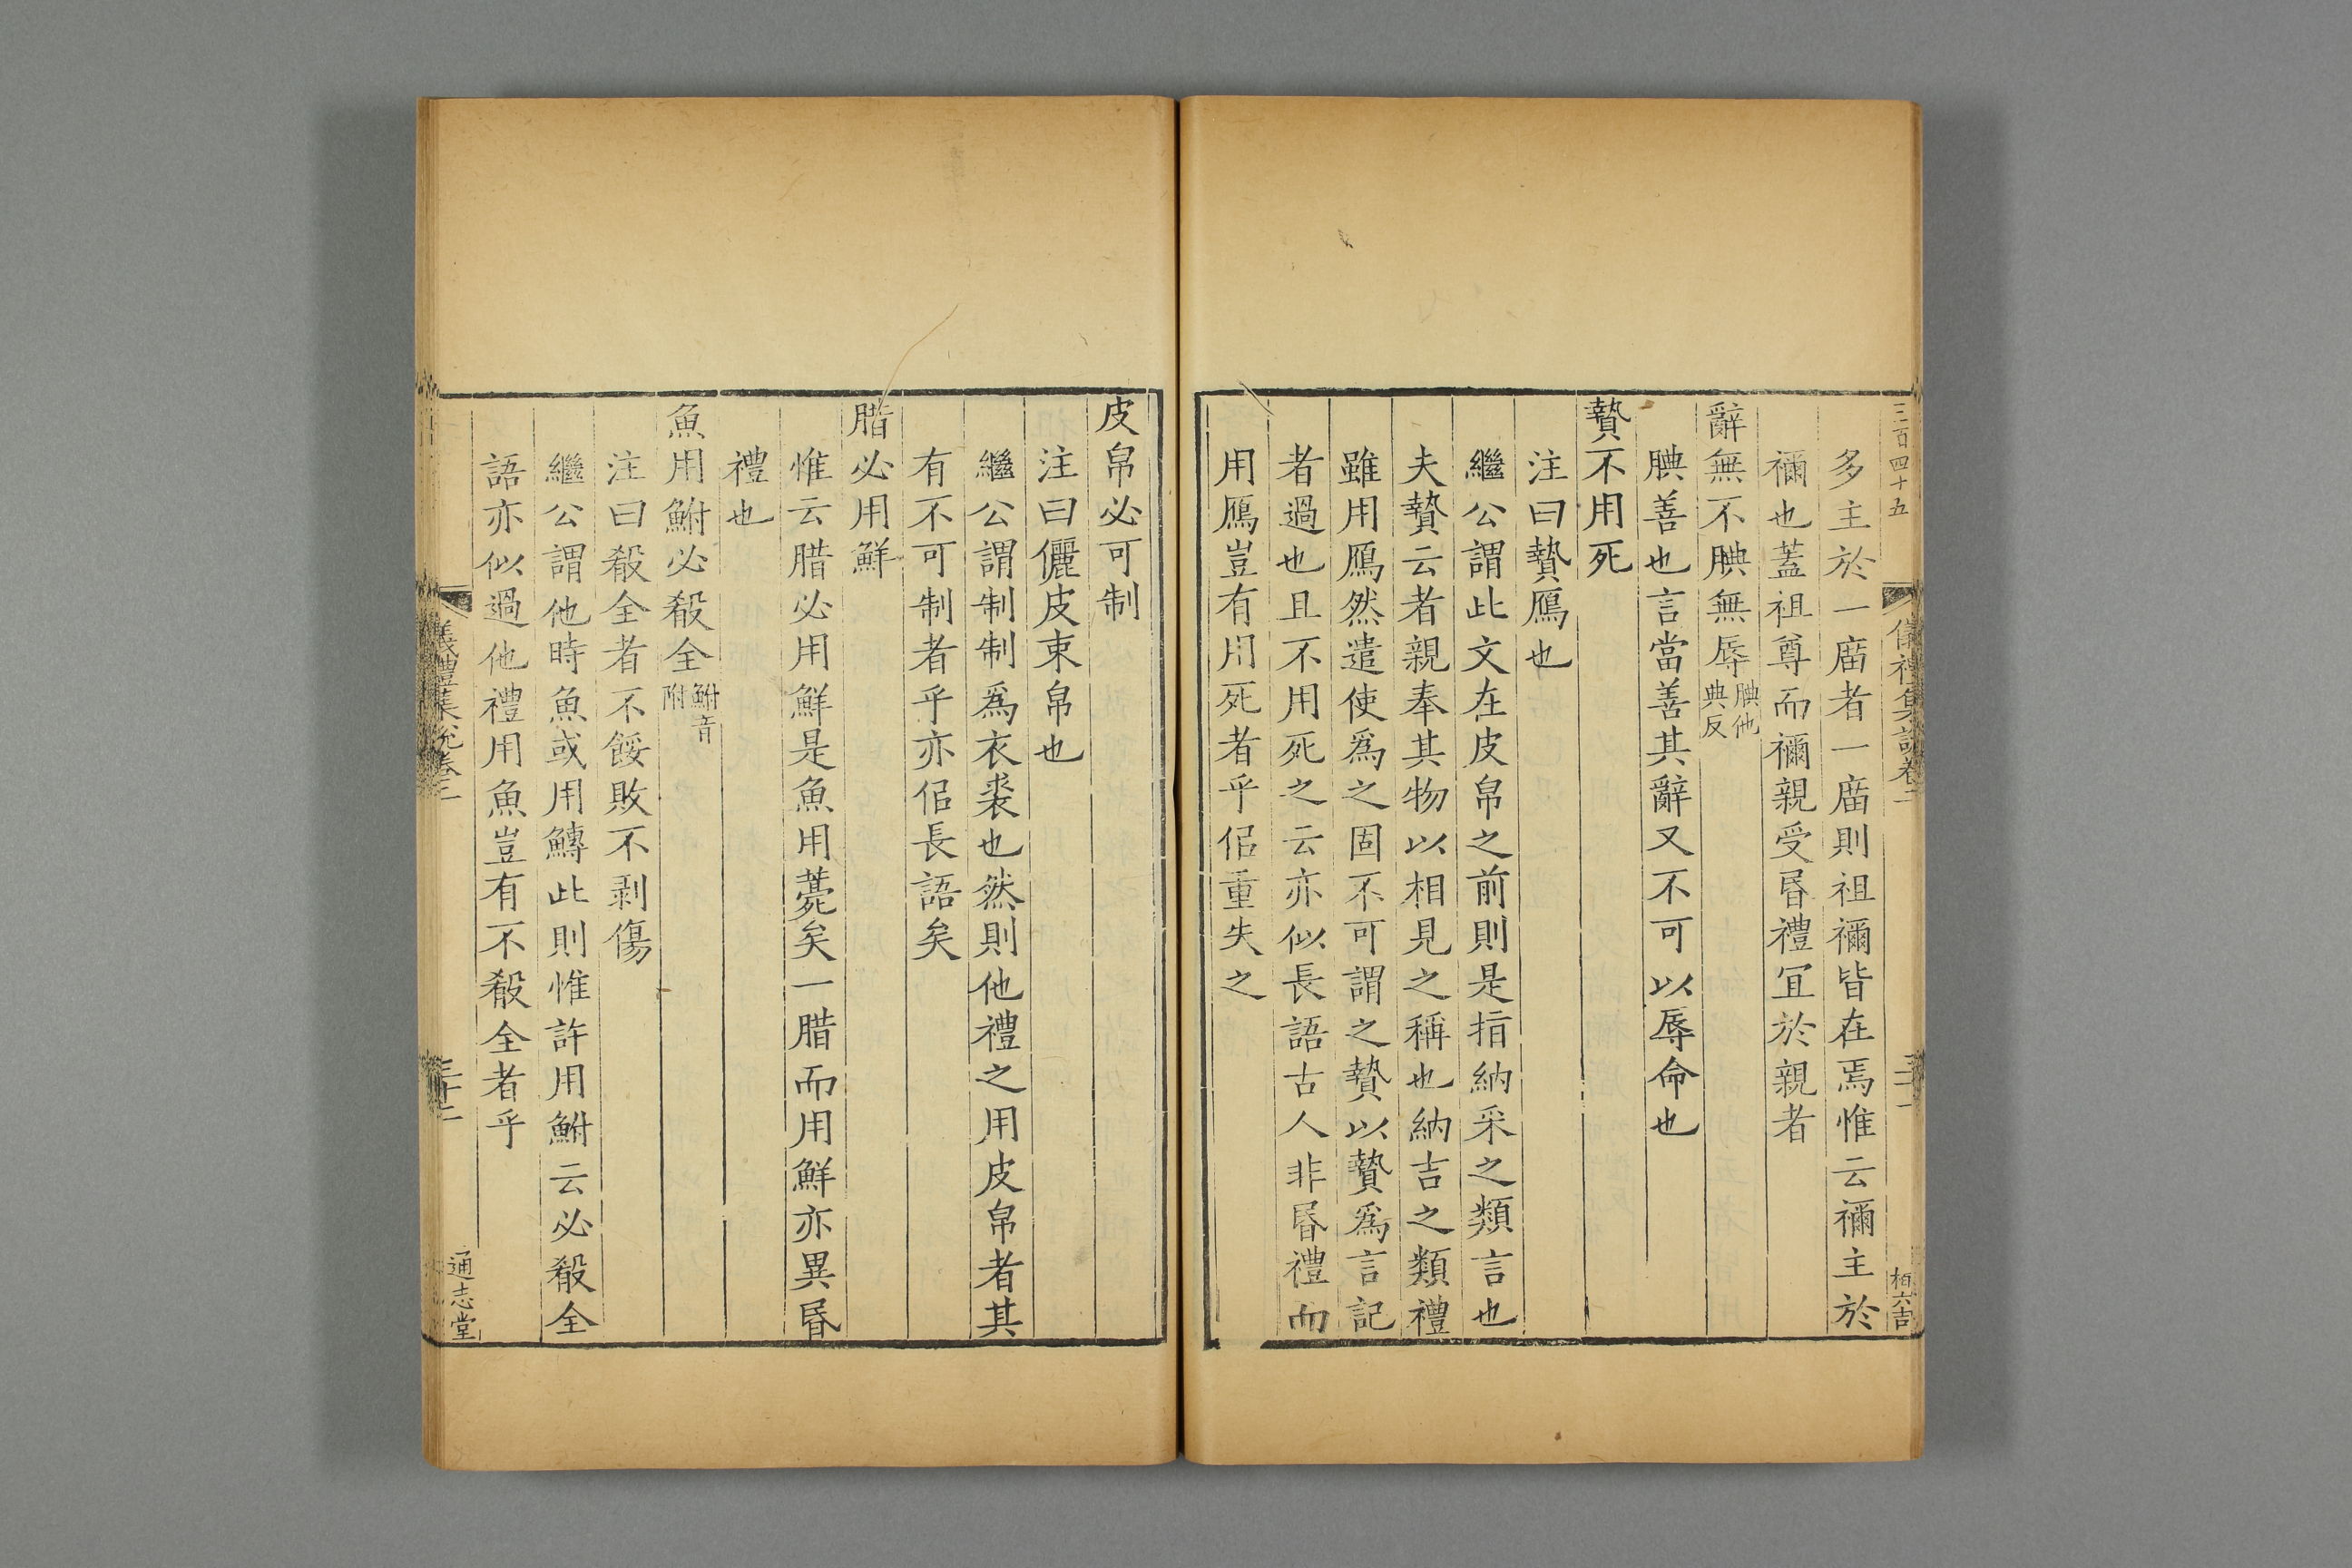 三百四十五
儀禮集說卷二
柏六吉
多主於一庿者一庿則祖禰皆在焉惟云禰主於
禰也蓋祖尊而禰親受昬禮宜於親者
辭無不腆無辱腆他典反
腆善也言當善其辭又不可以辱命也
贄不用死
注曰贄鴈也
繼公謂此文在皮帛之前則是指納采之類言也
夫贄云者親奉其物以相見之稱也納吉之類禮
雖用鴈然遣使爲之固不可謂之贄以贄爲言記
者過也且不用死之云亦似長語古人非昬禮而
用鴈豈有用死者乎侣重失之
皮帛必可制
注曰儷皮束帛也
繼公謂制制爲衣裘也然則他禮之用皮帛者其
有不可制者乎亦侣長語矣
腊必用鮮
惟云腊必用鮮是魚用薧矣一腊而用鮮亦異昬
禮也
魚用鮒必殽全鮒音附
注曰殽全者不餒敗不剥傷
繼公謂他時魚或用鱄此則惟許用鮒云必殽全
語亦似過他禮用魚豈有不殽全者乎
儀禮集說卷二
三十二
通志堂